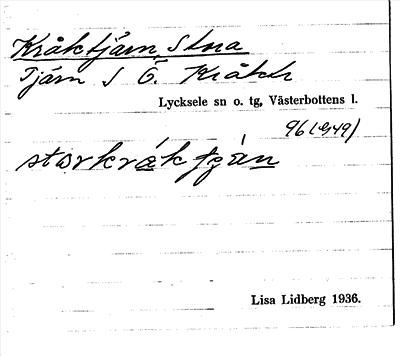 Kråktjärn, Stora
Tjärn S Ö. Kråktr
Lycksele sn o. tg, Västerbottens l.
96 (49)
storkråk tjärn
Lisa Lidberg 1936.